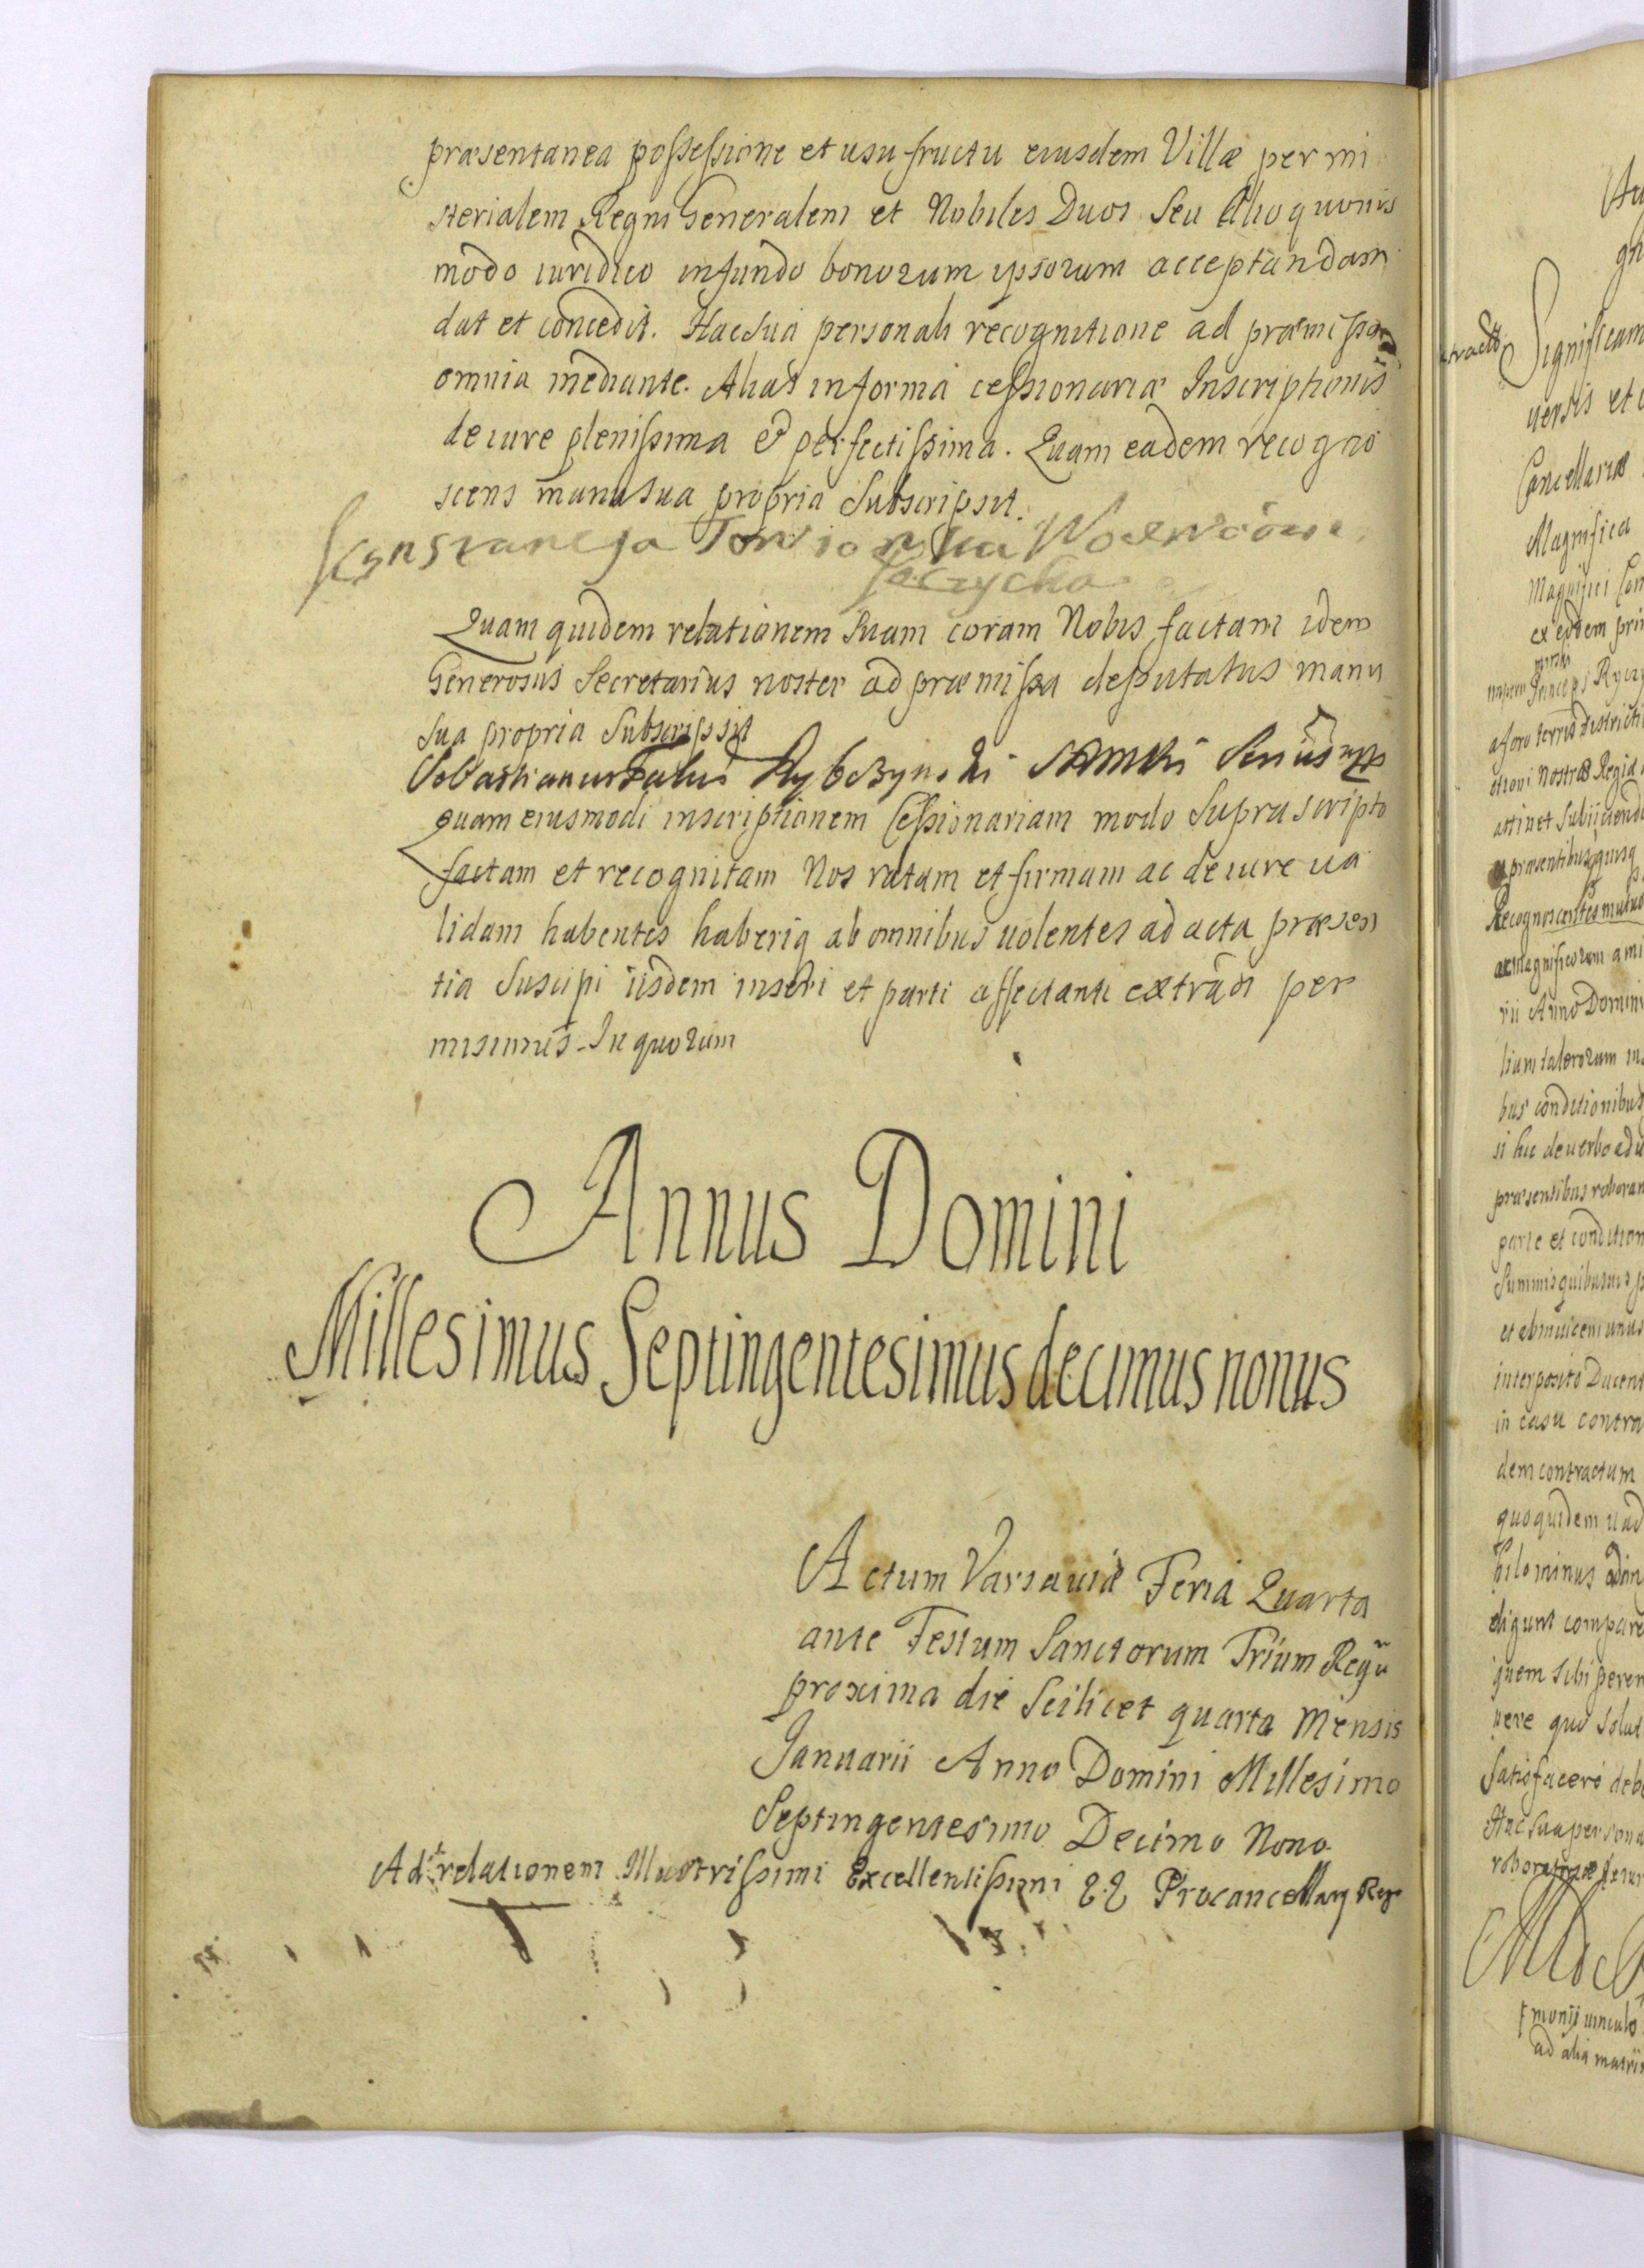 præsentanea possessione et usu fructu eiusdem Villæ per mi
sterialem Regni Generalem et Nobiles Duos Seu Alio quovis
modo iuridico in fundo bonorum ipsorum acceptandam
dat et concedit. Hac sua personali recognitione ad præmissa
omnia mediante. Alias in forma cessionariæ Inscriptionis
de iure plenissima & perfectissima. Quam eadem recogno
scens manu sua propria Subscripsit.
Quam quidem relationem Suam coram Nobis factam idem
Generosus Secretarius noster ad præmissa deputatus manu
sua propria Subscripsit
Sebastianus Rybczynski
Quam eiusmodi inscriptionem Cessionariam modo Supra scripto
factam et recognitam Nos ratam et firmam ac de iure va
lidam habentes haberiq ab omnibus volentes ad acta præsen
tia Suscipi iisdem inseri et parti affectanti extradi per
misimus. In quorum
Annus Domini
Millesimus Septingentesimus decimus nonus
Actum Varsaviæ Feria Quarta
ante Festum Sanctorum Trium Regũ
proxima die Scilicet quarta Mensis
Januarii Anno Domini Millesimo
Septingentesimo Decimo Nono
Ad relationem Illustrissimi Excellentissimi Procancellarij Regni
Significam
versis et
Cancellariæ
Magnifica
Magnifici
ex eodem
a foro terræ districti
ctioni Nostræ Regiæ
attinet Subiiciendo
præsentibus
Recognoscentes mutuo
ac magnificorum
rii Anno Domini
lium talerorum in
bus conditionibus
si hic de verbo ad
præsentibus roboran
parte et condition
Summis quibusvis
et ab invicem unus
interposito Ducent
in casu contra
dem contractum
quo quidem vad
hilominus
digunt compare
quem sibi perem
vere quo Solut
Satisfaceri debe
Hac sua persona
monij vinculo
ad alia